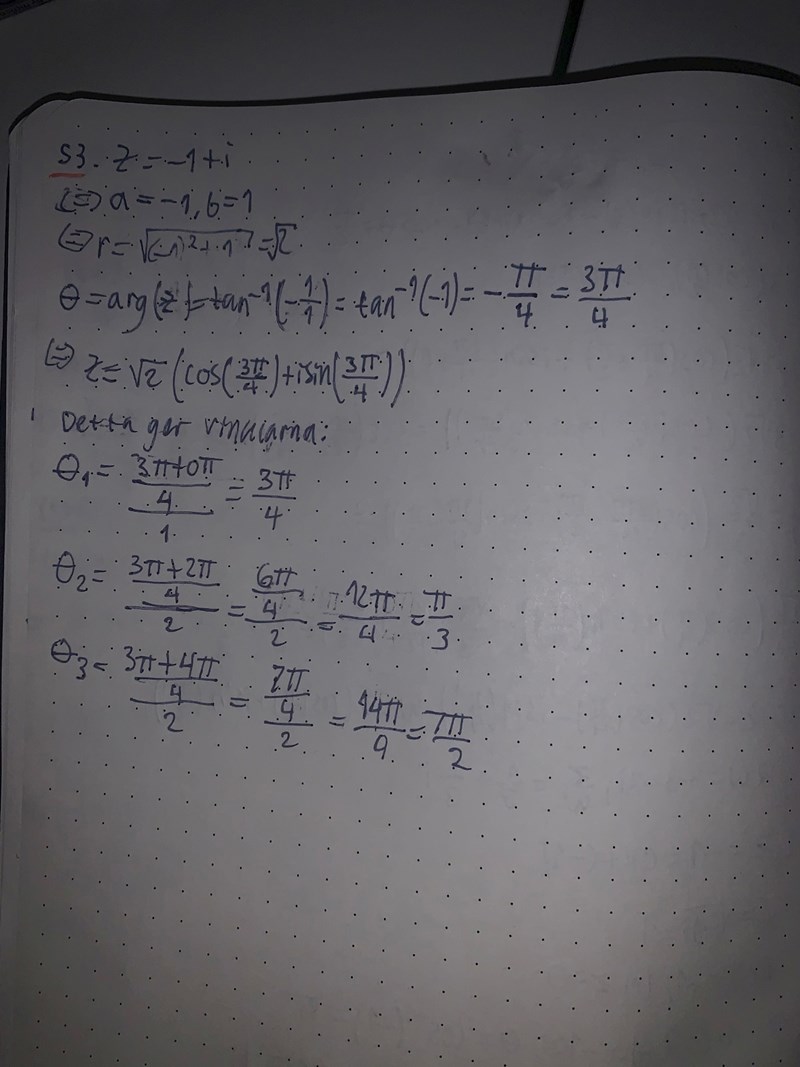 S3. z = -1 + i
(⇔) a = -1, b = 1
⇔ r = √((-1)² + 1²) = √2
θ = arg(z) = tan⁻¹(-1/1) = tan⁻¹(-1) = -π/4 = 3π/4
⇔ z = √2 (cos(3π/4) + i sin(3π/4))
Detta ger vinklarna:
θ₁ = ((3π + 0π)/4)/1 = 3π/4
θ₂ = ((3π + 2π)/4)/2 = (6π/4)/2 = 12π/4 = π/3
θ₃ = ((3π + 4π)/4)/2 = (7π/4)/2 = 14π/9 = 7π/2